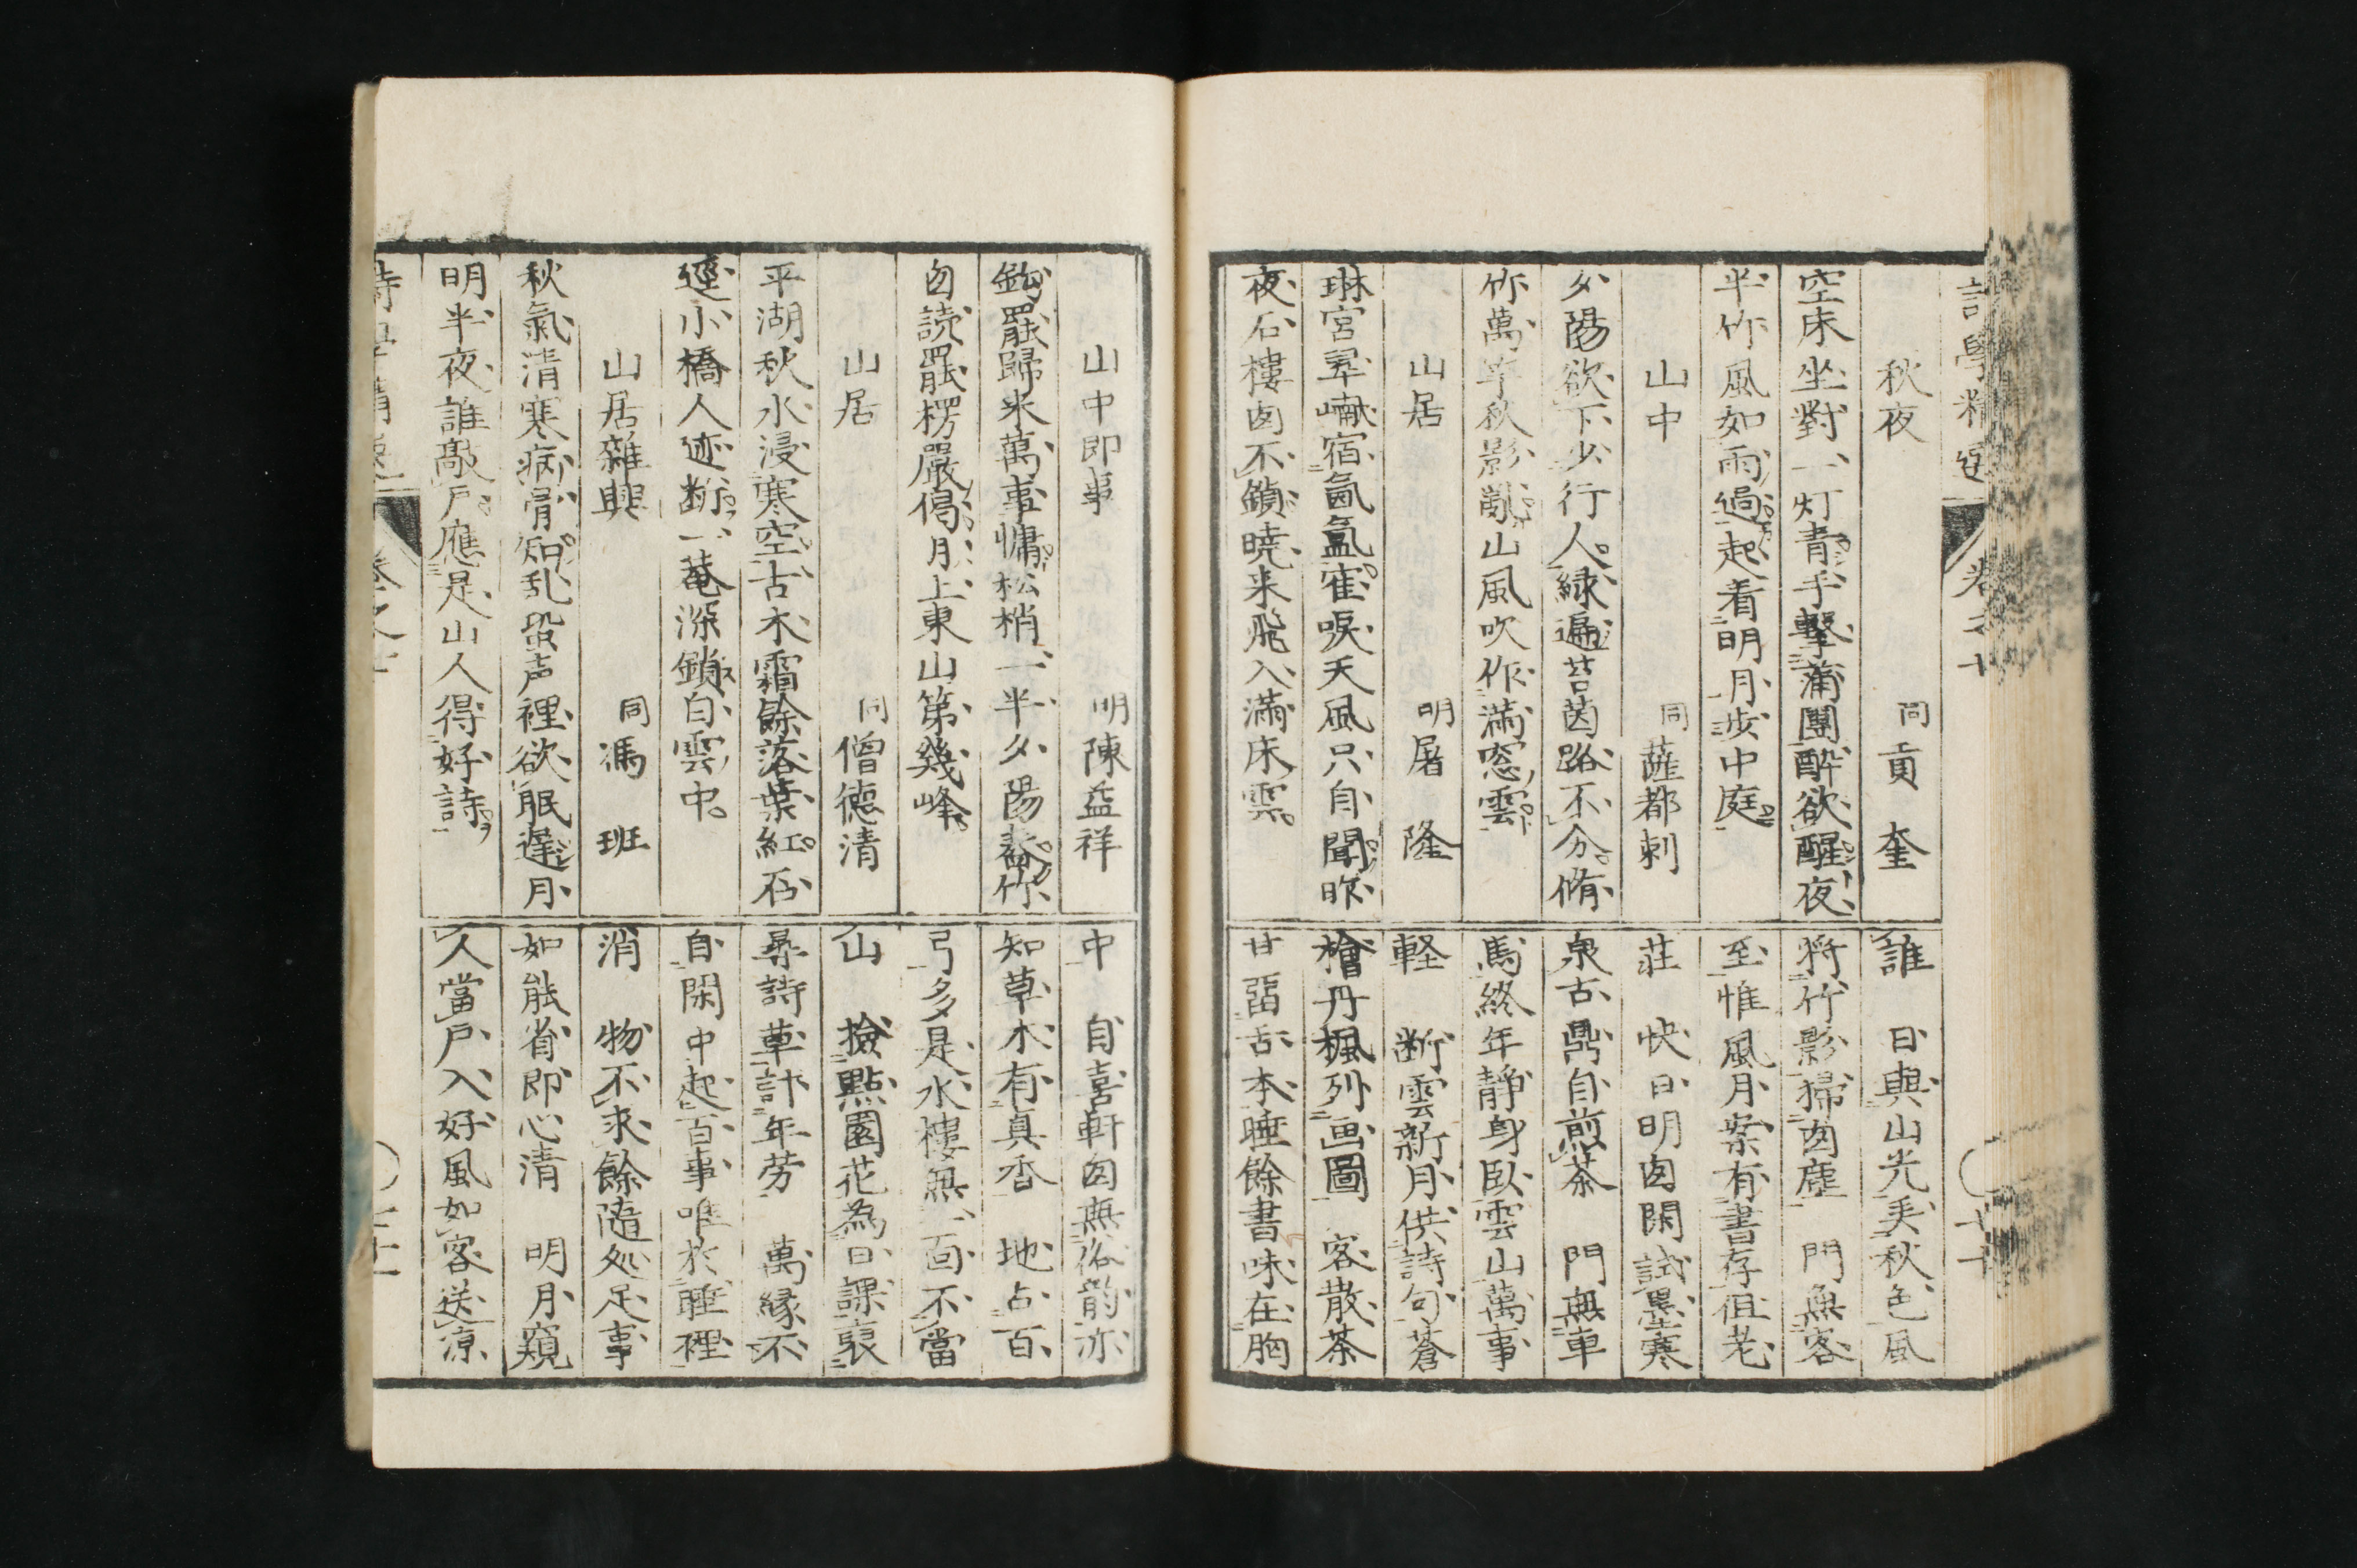 詩學精選
卷之十
秋夜 同 貢奎
空床坐對一灯青手擊蒲團酔欲醒夜
半竹風如雨過起看明月步中庭
山中 同 薩都剌
夕陽欲下少行人緑遍苔茵路不分脩
竹萬竿秋影亂山風吹作滿窓雲
山居 明 屠隆
琳宮翠巘宿氤氳寉唳天風只自聞昨
夜石樓囱不鎖曉来飛入滿床雲
誰 日與山光美秋色風
将竹影掃囱塵 門無客
至惟風月案有書存但老
荘 快日明囱閑試墨寒
泉古鼎自煎茶 門無車
馬終年静身臥雲山萬事
軽 断雲新月供詩句蒼
檜丹楓列画圖 客散茶
甘留舌本睡餘書味在胸
山中即事 明 陳益祥
鈎罷歸来萬事慵松梢一半夕陽舂竹
囱読罷楞嚴偈月上東山第幾峰
山居 同 僧徳清
平湖秋水浸寒空古木霜餘落葉紅石
逕小橋人迹断一菴深鎖白雲中
山居雜興 同 馮班
秋氣清寒病骨知乱蛩声裡欲眠遅月
明半夜誰敲戸應是山人得好詩
中 自喜軒囱無俗韵亦
知草木有真香 地占百
弓多是水樓無一面不當
山 撿點園花為日課裒
尋詩草計年労 萬縁不
自閑中起百事唯於睡裡
消 物不求餘随処足事
如能省即心清 明月窺
人當戸入好風如客送凉
詩學精選
卷之十